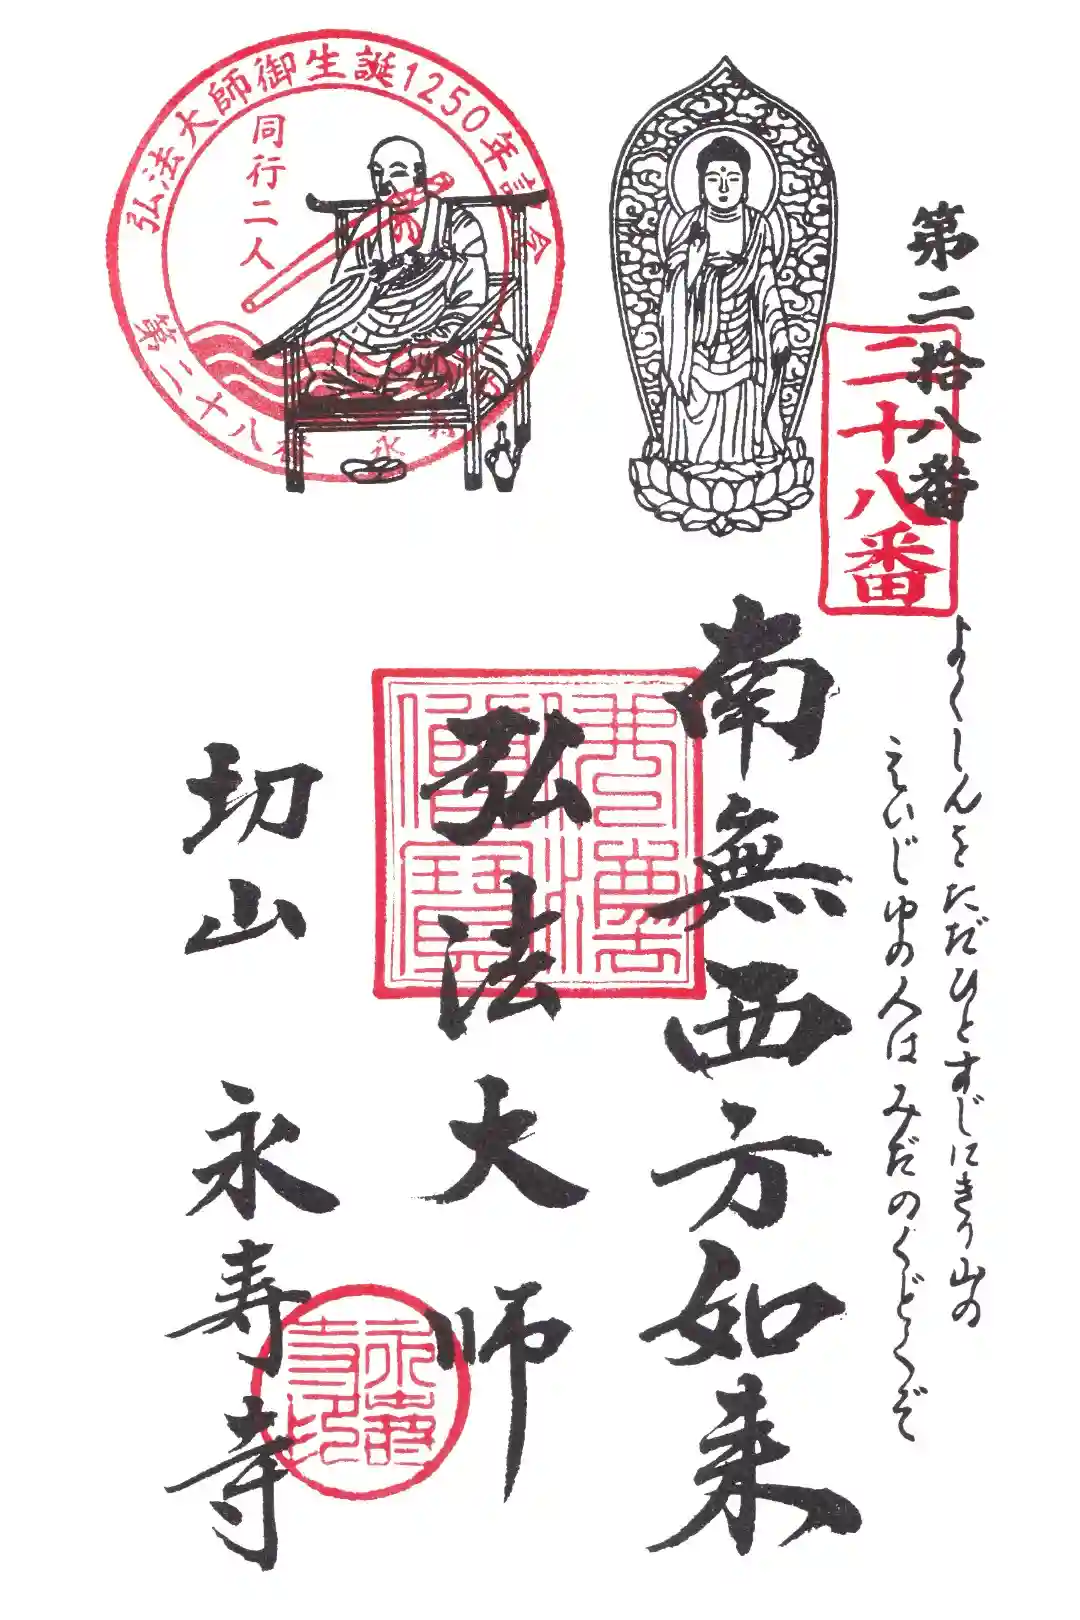 第二拾八番
二十八番
よくしんをただひとすじにきり山の
えいじゆの人はみだのくどくぞ
南無西方如来
弘法大師
切山 永寿寺
弘法大師御生誕1250年記念
同行二人
第二十八番 永寿
佛法僧寶
永壽寺印